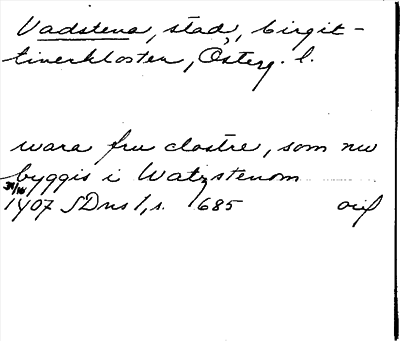 Vadstena, stad, birgit-
tinerkloster, Österg. l.
wara fru clostre, som nw
byggis i Watzstenom
1407 SDns 1, s. 685